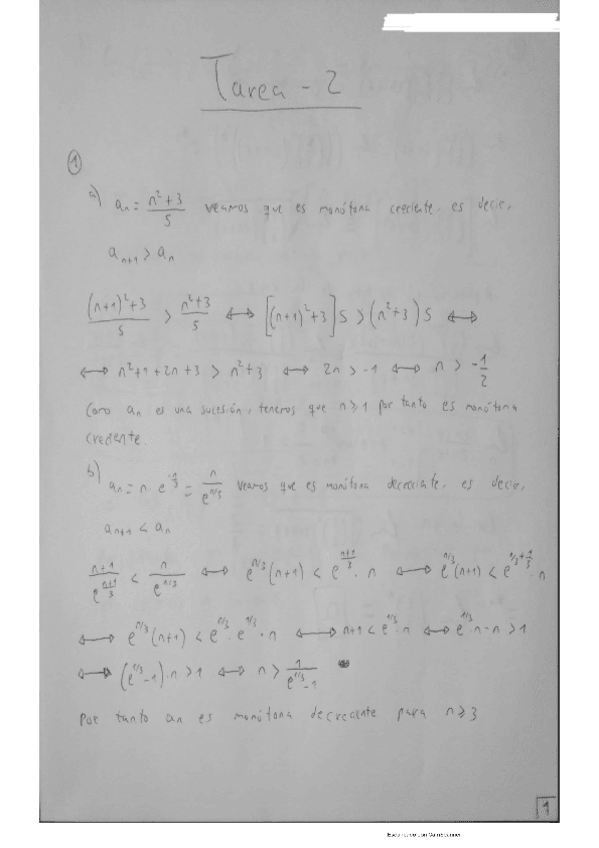 Tarea - 2
①
a) aₙ = (n²+3)/5 veamos que es monótona creciente, es decir,
aₙ₊₁ > aₙ
((n+1)²+3)/5 > (n²+3)/5 ⟷ [(n+1)²+3]5 > (n²+3)5 ⟷
⟷ n²+1+2n+3 > n²+3 ⟷ 2n > -1 ⟷ n > -1/2
Como aₙ es una sucesión, tenemos que n ≥ 1 por tanto es monótona
creciente.
b) aₙ = n · e^(-n/3) = n/e^(n/3) veamos que es monótona decreciente, es decir,
aₙ₊₁ < aₙ
(n+1)/e^((n+1)/3) < n/e^(n/3) ⟷ e^(n/3)(n+1) < e^((n+1)/3) · n ⟷ e^(n/3)(n+1) < e^(n/3+1/3) · n
⟷ e^(n/3)(n+1) < e^(n/3) · e^(1/3) · n ⟷ n+1 < e^(1/3) · n ⟷ e^(1/3) · n - n > 1
⟷ (e^(1/3) - 1) · n > 1 ⟷ n > 1/(e^(1/3) - 1)
Por tanto aₙ es monótona decreciente para n ≥ 3
1
Escaneado con CamScanner